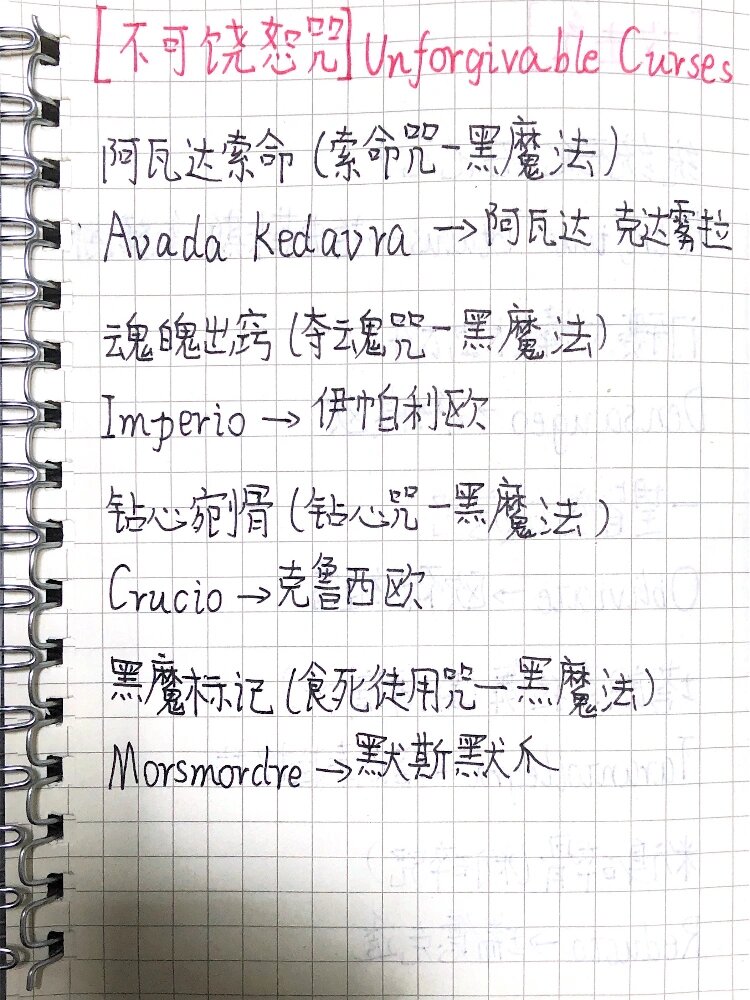 [不可饶恕咒] Unforgivable Curses
阿瓦达索命 (索命咒-黑魔法)
Avada Kedavra → 阿瓦达 克达雾拉
魂魄出窍 (夺魂咒-黑魔法)
Imperio → 伊帕利欧
钻心剜骨 (钻心咒-黑魔法)
Crucio → 克鲁西欧
黑魔标记 (食死徒用咒-黑魔法)
Morsmordre → 默斯默爪